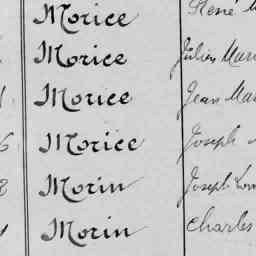 Morice René
Morice Julien Mari
Morice Jean Ma
Morice Joseph
Morin Joseph Lou
Morin Charles